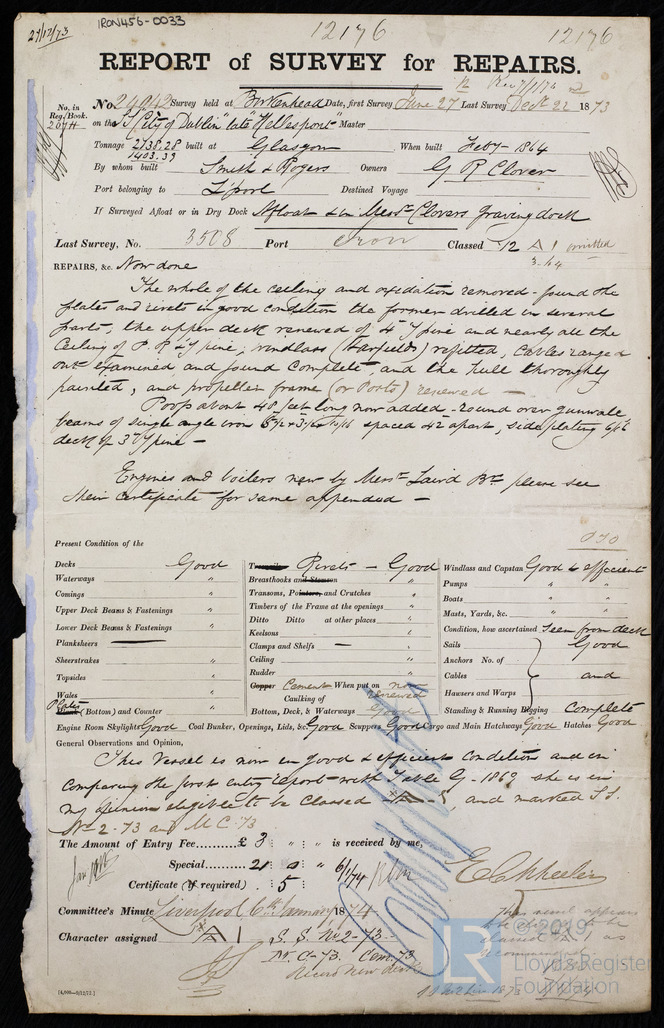 27/12/73
IRON456-0033
12176 12176
REPORT of SURVEY for REPAIRS.
No. in Reg. Book. 2074
No. 24042 Survey held at Birkenhead Date, first Survey June 27 Last Survey Dec 22 1873
on the "City of Dublin" late "Hellespont" Master
Tonnage 2138.28 built at Glasgow When built Feby - 1864
1403.39
By whom built Smith & Rogers Owners G R Clover
Port belonging to L'pool Destined Voyage
If Surveyed Afloat or in Dry Dock Afloat & in Messrs Clovers graving dock
Last Survey, No. 3508 Port Iron Classed 12 A 1 omitted
3.64
REPAIRS, &c. Now done
The whole of the ceiling and oxidation removed - found the
plates and rivets in good condition the former drilled in several
parts, the upper deck renewed of 4" Y pine and nearly all the
Ceiling of P.P & Y pine, windlass (Harfields) refitted, cables ranged
out examined and found complete, and the hull thoroughly
painted, and propeller frame (or Posts) renewed —
Poop about 48 feet long now added - round over gunwale
beams of single angle iron spaced 42 apart, side plating 6/16
deck of 3" Y pine —
Engines and boilers new by Messrs Laird Bros please see
their certificate for same appended —
Present Condition of the
Decks Good
Waterways "
Comings "
Upper Deck Beams & Fastenings "
Lower Deck Beams & Fastenings "
Planksheers —
Sheerstrakes "
Topsides "
Wales "
Plates (Bottom) and Counter "
Treenails Rivets - Good
Breasthooks and Stemson "
Transoms, Pointers, and Crutches "
Timbers of the Frame at the openings "
Ditto Ditto at other places "
Keelsons "
Clamps and Shelfs —
Ceiling "
Rudder "
Copper Cement When put on now renewed
Caulking of
Bottom, Deck, & Waterways Good
Windlass and Capstan Good & efficient
Pumps " "
Boats " "
Masts, Yards, &c. " "
Condition, how ascertained Seen from deck
Sails Good
Anchors No. of
Cables and
Hawsers and Warps
Standing & Running Rigging Complete
Engine Room Skylights Good Coal Bunker, Openings, Lids, &c. Good Scuppers Good Cargo and Main Hatchways Good Hatches Good
General Observations and Opinion,
This Vessel is now in good & efficient condition and in
comparing the first entry report with Table G - 1869 she is in
my opinion eligible to be Classed A, and marked S.S.
No 2-73 and M C-73
The Amount of Entry Fee.......... £ 3 " " is received by me,
Special.......... 21 0 " 6/1/74
Certificate (if required) . 5
E C Wheeler
Committee's Minute Liverpool 6th January 1874
Character assigned A 1 S.S. No 2-73-
M.C-73. Cem. 73
Record New deck
[4,000—9/12/72]
© 2019
LR Lloyd's Register
Foundation